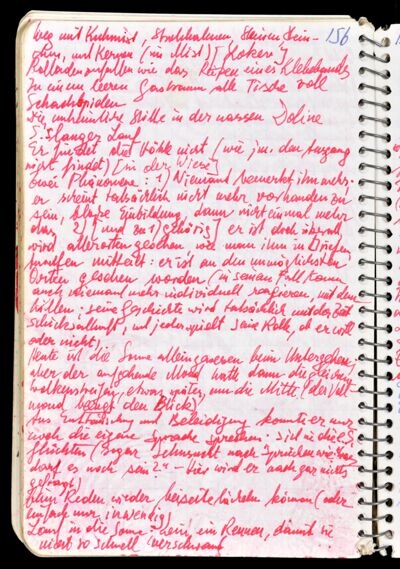 156
weg mit Kuhmist, Strohhalmen, Steinen
und Kernen (im Mist)
wie das eines Klebebandes
In einem leeren Gastraum alle Tische voll
Schachspielen
Die unheimliche Stille in der nassen Doline
S. Slanger Lauf
Er findet die Höhle nicht (wie jem. den Ausgang
nicht findet) [in der Wiese]
Zwei Phänomene: 1) Niemand bemerkt ihn mehr,
er scheint tatsächlich nicht mehr vorhanden zu
sein, bloße Einbildung, dann nicht einmal mehr
das, 2) [und zu 1) gehörig] er ist doch
wird allerorten gesehen wie man ihm in Briefen
mitteilt: er ist an den unmöglichsten
Orten gesehen worden (in seinem Fall kann
auch niemand mehr individuell reagieren, mit dem
seine Geschichte wird tatsächlich
und jeder spielt seine Rolle, ob er will
oder nicht)
Heute ist die Sonne allein gewesen beim Untergehen,
aber der aufgehende Mond hatte dann die
Wolkenstreifen, etwas später, um die Mitte (der Voll
mond beugt den Blick)
Aus und Beleidigung konnte er nur
noch die eigene Sprache sprechen: sich in die
flüchten (Sogar Sehnsucht nach Sprüchen wie "Was
darf es noch sein?" – Hier wird er auch gar nichts
gefragt)
Reden wieder beiseite lächeln können (oder
einfach nur inwendig)
Lauf in die Sonne: ein Rennen, damit sie
nicht so schnell verschwand